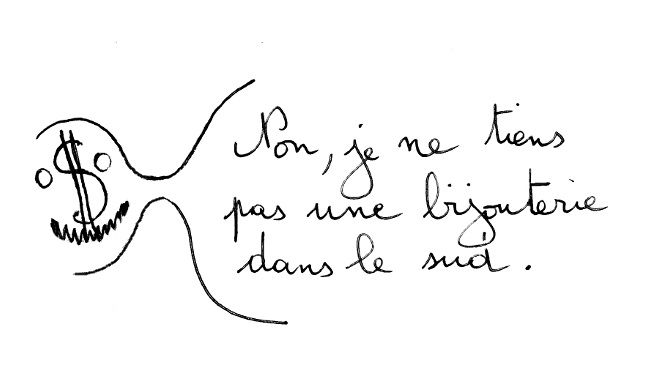 $
Non, je ne tiens
pas une bijouterie
dans le sud.